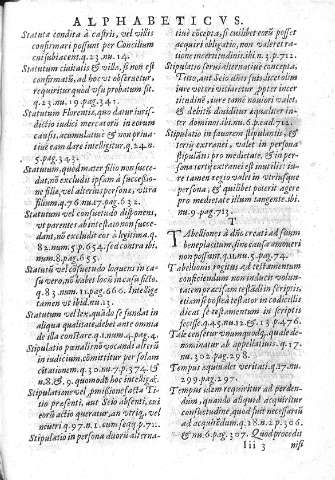 ALPHABETICVS.
Statuta condita à castris, vel villis
confirmari possunt per Concilium
cui subiacent. q.23. nu.14.
Statutum ciuitatis & villæ, si non est
confirmatũ, ad hoc vt obseruetur,
requiritur quòd vsu probatum sit.
q.23. nu.19. pag.341.
Statutum Florentiæ, quo datur iurisdictio
iudici mercatorũ in certis
causis, acumulatiuè & non priuatiuè
eam dare intelligitur. q.24. n.
5. pag.343.
Statutum, quòd mater filio non succedat,
nõ excludit ipsam à successione
filiæ, vel alterius personæ, vltra
filium. q.76. nu.17. pag.632.
Statutum vel consuetudo disponens,
vt parentes ab intestato non succedant,
nõ excludit eos à legitima. q.
82. num.5. p.654. sed contra ibi.
num.8. pag.655.
Statutũ vel cõsuetudo loquens in casu
vero, nõ habet locũ in casu ficto.
q.83. num.11. pag.660. Intellige
tamen vt ibid. nu.13.
Statutum vel lex, quãdo se fundat in
aliqua qualitate, debet ante omnia
de illa constare. q.1. num.4. pag.4.
Stipulatio pœnalis nõ vocandi alterũ
in iudicium, cõmittitur per solam
citationem. q.30. nu.7. p.374. &
n.8. & 9. quomodò hoc intelligã.
Stipulatione vel promissione facta Titio
presenti, aut Seio absenti, cui
eorũ actio quæratur, an vtriq, vel
neutri. q.97. n.1. cum seq. p.72.
Stipulatio in persona duorũ alternatiuè
cõcepta, si cuilibet eorũ posset
acquiri obligatio, non valet ratione
incertitudinis. ibi. n.3. p.712.
Stipulatio seu instrumentũ conceptũ
Titio, aut Seio
iure veteri vitiaretur propter incertitudinẽ,
iure tamẽ nouiori valet,
& debitũ diuiditur æqualiter inter
dominos. ibi. nu.6. p.aed.712.
Stipulatio in fauorem stipulantis, &
tertij extranei, valet in persona
stipulãtis pro medietate, & in persona
tertij extranei est inutilis: iure
tamen regio valet in vtriusque
persona, & quilibet poterit agere
pro medietate illum tangente. ibi.
nu.9. pag.713.
T
Tabelliones à dño creati ad suum
beneplacitum, sine causa amoueri
non possunt. q.11. nu.5. pag.74.
Tabelliones rogitus ad testamentum
conficiendum non inducit voluntatem
precisam testãdi in scriptis,
etiam so postea testator in codicillis
dicat se testamentum in scriptis
fecisse. q.45. nu.12. & 13. p.476.
Tale censetur vnumquodq, quale denominatur
ab appellatiuis. q.17.
nu.302. pag.298.
Tempus æquiualet veritati. q.17. nu.
299. pag.297.
Tempus idem requiritur ad perdendum,
quando aliquid acquiritur
consuetudine, quod fuit necessariũ
ad acquirẽdum. q.18. n.2. p.306.
& nu.6. pag.307. Quod procedit
Iii 3 nisi